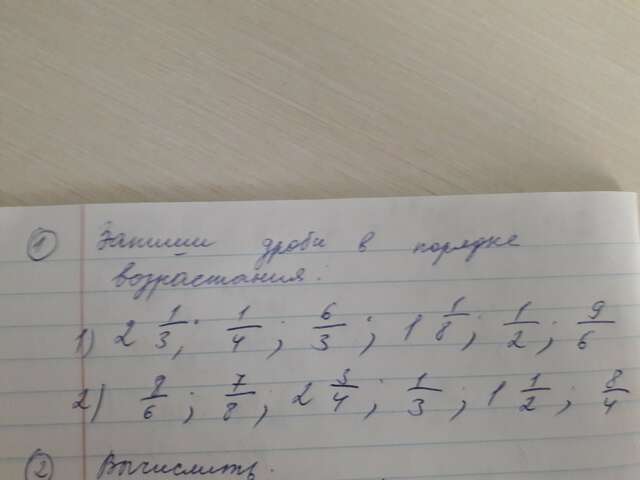 ① Запиши дроби в порядке
возрастания:
1) 2 1/3; 1/4; 6/3; 1 1/8; 1/2; 9/6
2) 8/6; 7/8; 2 3/4; 1/3; 1 1/2; 8/4
② Вычислить.